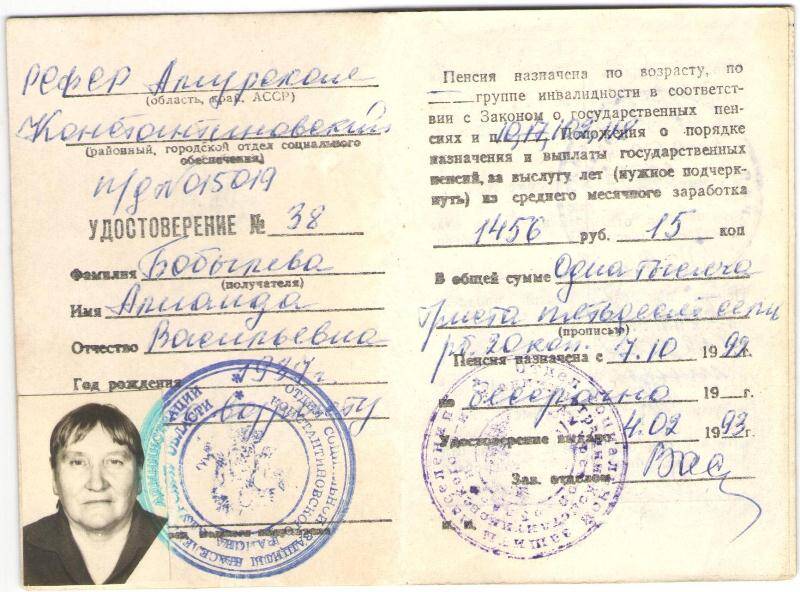 РСФСР Амурская
(область, край, АССР)
Константиновский
(районный, городской отдел социального
обеспечения)
п/д №015019
УДОСТОВЕРЕНИЕ № 38
Фамилия Бобырева
(получателя)
Имя
Отчество Васильевна
Год рождения 1937г.
Пенсия назначена по возрасту, по
группе инвалидности в соответст-
вии с Законом о государственных пен-
сиях и п. Положения о порядке
назначения и выплаты государственных
пенсий, за выслугу лет (нужное подчерк-
нуть) из среднего месячного заработка
1456 руб. 15 коп
В общей сумме Одна тысяча
триста пятьдесят семь
(прописью)
рб. 20 коп.
Пенсия назначена с 7.10 1992г.
по бессрочно 19 г.
Удостоверение выдано 4.02 1993г.
Зав. отделом
М. П.